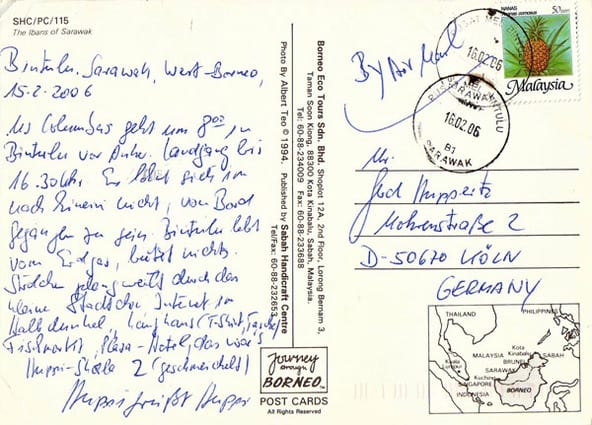 SHC/PC/115
The Ibans of Sarawak
Bintulu, Sarawak, West-Borneo,
15.2.2006
MS Columbus geht um 8⁰⁰ in
Bintulu vor Anker. Landgang bis
16.30 Uhr. Es lohnt sich im
nach hinein nicht, von Bord
gegangen zu sein. Bintulu lebt
vom Erdgas, bietet nichts.
durch das
kleine Städtchen Internet im
Halbdunkel, Langhaus (T-Shirt, Tasche)
Fischmarkt, Plaza-Hotel, das war's
Huppi-Skala 2 (geschmeichelt)
Huppi grüßt Huppi
Photo By Albert Teo © 1994. Published by Sabah Handicraft Centre
Tel/Fax: 60-88-232653
Borneo Eco Tours Sdn. Bhd. Shoplot 12A, 2nd Floor, Lorong Bernam 3,
Taman Soon Kiong, 88300 Kota Kinabalu, Sabah, Malaysia.
Tel: 60-88-234009 Fax: 60-88-233688
Journey
through
BORNEO™
POST CARDS
All Rights Reserved
By Air Mail
16.02.06
SARAWAK
BINTULU
16.02.06
B1
SARAWAK
NANAS
50 sen
Malaysia
Hr.
Huppertz
Mohrenstraße 2
D-50670 KÖLN
GERMANY
THAILAND
PHILIPPINES
MALAYSIA
Kota
Kinabalu
BRUNEI
SABAH
Kuala
Lumpur
SARAWAK
Kuching
SINGAPORE
BORNEO
INDONESIA